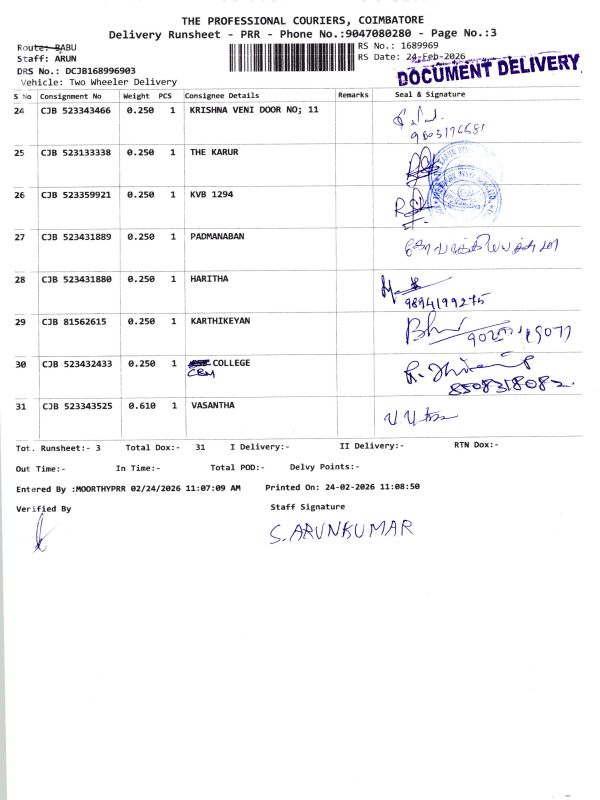 THE PROFESSIONAL COURIERS, COIMBATORE
Delivery Runsheet - PRR - Phone No.:9047080280 - Page No.:3
Route:- BABU
RS No.: 1689969
Staff: ARUN
RS Date: 24-Feb-2026
DRS No.: DCJB168996903
Vehicle: Two Wheeler Delivery
DOCUMENT DELIVERY
S No Consignment No Weight PCS Consignee Details Remarks Seal & Signature
24 CJB 523343466 0.250 1 KRISHNA VENI DOOR NO; 11
25 CJB 523133338 0.250 1 THE KARUR
26 CJB 523359921 0.250 1 KVB 1294
27 CJB 523431889 0.250 1 PADMANABAN
28 CJB 523431880 0.250 1 HARITHA
9894199275
29 CJB 81562615 0.250 1 KARTHIKEYAN
30 CJB 523432433 0.250 1 COLLEGE
CBM
8508318082.
31 CJB 523343525 0.610 1 VASANTHA
Tot. Runsheet:- 3 Total Dox:- 31 I Delivery:- II Delivery:- RTN Dox:-
Out Time:- In Time:- Total POD:- Delvy Points:-
Entered By :MOORTHYPRR 02/24/2026 11:07:09 AM Printed On: 24-02-2026 11:08:50
Verified By Staff Signature
S. ARUNKUMAR